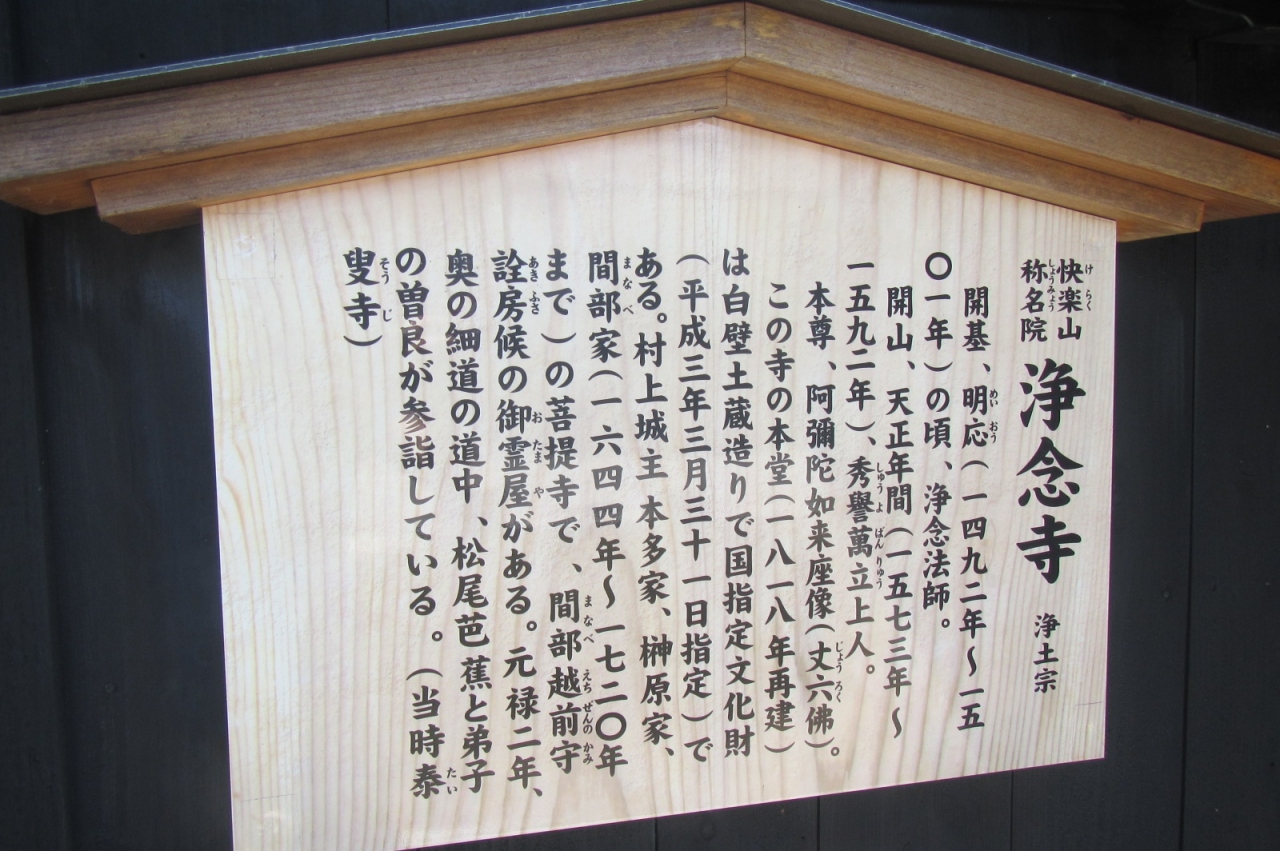 快楽山
称名院
浄念寺 浄土宗
開基、明応(一四九二年～一五
〇一年)の頃、浄念法師。
開山、天正年間(一五七三年～
一五九二年)、秀譽萬立上人。
本尊、阿彌陀如来座像(丈六佛)。
この寺の本堂(一八一八年再建)
は白壁土蔵造りで国指定文化財
(平成三年三月三十一日指定)で
ある。村上城主 本多家、榊原家、
間部家(一六四四年～一七二〇年
まで)の菩提寺で、間部越前守
詮房候の御霊屋がある。元禄二年、
奥の細道の道中、松尾芭蕉と弟子
の曽良が参詣している。(当時泰
叟寺)